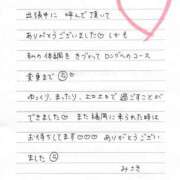 出張中に 呼んで頂いて
ありがとうございました♡ しかも
私の体調を きづかって ロングへのコース
変更まで
ゆっくり、まったり、上口上口で 過ごすことが
できました♡ また 福岡に来られた時は
お待ちしてます♡♡♡ ありがとうござい
ました
みさき